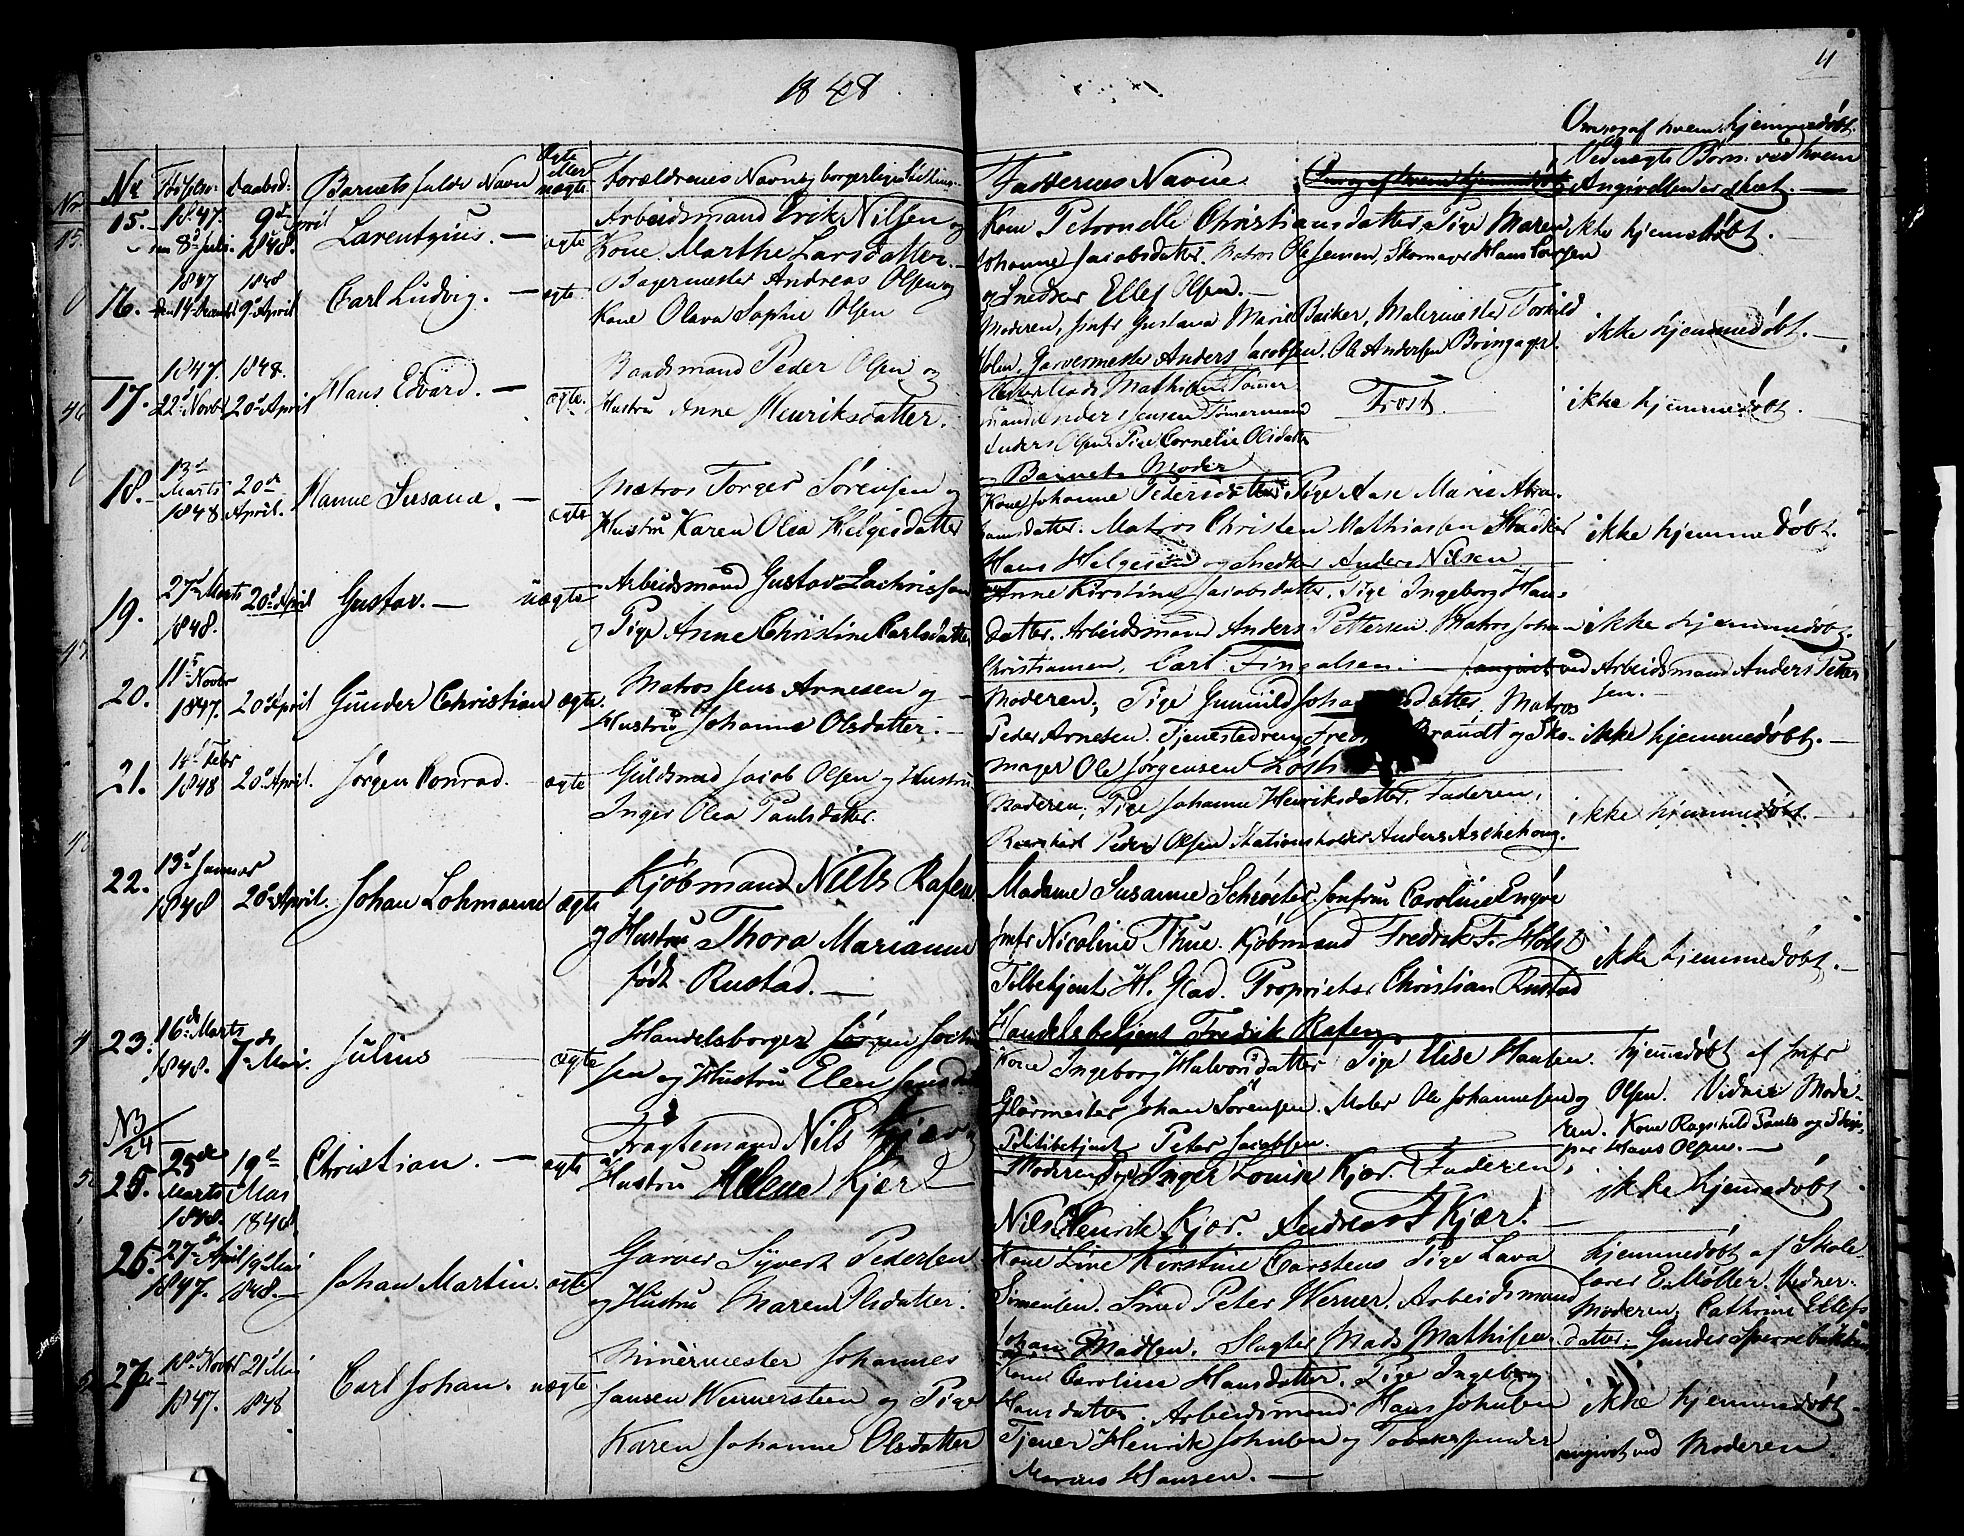 1848
11
Om og af hvem hjemmedøbt.
Ved uægte Børn: ved hvem
Nr Fødsels- Daabsd: Barnets fulde Navn Ægte eller uægte Forældrenes Navn, borgerlige Stilling
Faddernes Navne. Angivelsen er skeet. —
15. 1847. 9de April Larentzius. — ægte Arbeidsmand Erik Nilsen og
den 8de Juli. 1848. Kone Marthe Larsdatter. —
Kone Petronelle Christiansdatter, Pige Maren ikke hjemmedøbt. —
Johanne Jacobsdatter. Matros Ole Jensen, Skomager Hans
og Snedker Ellef Olsen. —
16. 1847 1848 Carl Ludvig. — ægte. Bagermester Andreas Olsen og
den 14 Decemb 9de April Kone Olava Sophie Olsen
Moderen, Jmfr Gustava Marie Backer, Malermester Torkild
Holm, Garvermester Anders Jacobsen. Ole Andersen Bringager. ikke hjemmedøbt. —
17. 1847. 1848. Hans Edvard. — ægte. Baadsmand Peder Olsen og
22de Novbr 20de April Hustru Anne Henriksdatter.
Mads Mathisen. Tømmer
mand Anders Jensen Tømermand Frost. ikke hjemmedøbt.
Anders Olsen. Pige Cornelie Olsdatter
Barnets Moder
18. — 13de Marts 1848. 20de April. Hanne Susane. — ægte Matros Torger Sørensen og
Hustru Karen Olea Helgesdatter
Kone Johanne Pedersdatter Pige Aase Marie Abra-
hamsdatter. Matros Christen Mathiasen Snedker ikke hjemmedøbt.
Hans Helgesen og Snedker Anders Nilsen
19. 27de Marts 1848. 20de April Gustav. — uægte Arbeidsmand Gustav Zachrissen
og Pige Anne Christine Carlsdatter
Anne Kirstine Jacobsdatter. Pige Ingeborg Han-
datter. Arbeidsmand Anders Pettersen. Matros Johan ikke hjemmedøbt.
Christiansen, Carl Fingalsen. — angivet ved Arbeidsmand Anders Petter
sen. —
20. 11te Novbr 1847. 20de April Gunder Christian ægte. Matros Jens Arnesen og
Hustru Johanne Olsdatter. —
Moderen, Pige Gunnild datter, Matros
Peder Arnesen. Tjenestedreng Brandt og Sko- ikke hjemmedøbt. —
mager Ole Jørgensen
21. Febr 1848 20de April. Jørgen Conrad. ægte Guldsmed Jacob Olsen og Hustru
Inger Olea Paulsdatter.
Moderen, Pige Johanne Henriksdatter. Faderen,
Peder Olsen Stationsholder Anders Aschehoug. ikke hjemmedøbt. —
22. 13de Januar 1848 20de April. Johan Lohmann ægte Kjøbmand Nills Rafen
og Hustru Thora Marianne
født Rustad. —
Madame Susanne Schrøeter. Jomfru Caroline Engøe
Jmfr Nicoline Thue. Kjøbmand Fredrik F. Holst ikke hjemmedøbt. —
H. Glad. Proprietær Christian Rustad
Handelsbetjent Fredrik Rafen
23. 16de Marts 1848. 7de Mai. Julius ægte Handelsborger Jørgen
sen og Hustru Elen
Kone Ingeborg Halvorsdatter Pige Elise Hansen. Hjemmedøbt af Jmfr
Glarmester Johan Sørensen. Maler Ole Johannesen og Olsen. Vidner Mode-
Politibetjent Peter Jacobsen. ren. Kone Ragnhild og Skip-
per Hans Olsen. —
N3/24
25. 25de Marts 1848. 19de Mai 1848. Christian. — ægte Fragtemand Nils Kjær
Hustru Helene Kjær
Moderen, Pige Inger Louise Kjær. Faderen,
Nils Henrik Kjær. Andreas F Kjær. — ikke hjemmedøbt
26. 27de April 1847. 19de Mai 1848. — Johan Martin. ægte Garver Syvert Pedersen
og Hustru Maren Olsdatter.
Kone Line Kirstine Carstens Pige Lava Hjemmedøbt af Skole
Simensen. Smed Peter Werner. Arbeidsmand lærer E. Møller. Vidner.
Johan Madsen. Slagter Mads Mathisen. Moderen, Cathrine Ellefs
datter.
27. 18de Novbr 1847. 21de Mai 1848 Carl Johan. uægte Minermester Johannes
Jansen Wennersteen og Pige
Karen Johanne Olsdatter
Kone Caroline Hansdatter. Pige Ingeborg
Hansdatter. Arbeidsmand Hans Johnsen ikke hjemmedøbt.
Tjener Henrik Johnsen og angivet ved Moderen
Marius Hansen. —